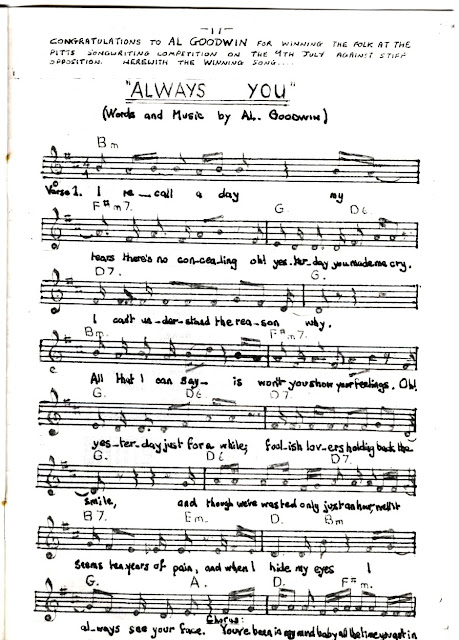 -11-
CONGRATULATIONS TO AL GOODWIN FOR WINNING THE FOLK AT THE
PITTS SONGWRITING COMPETITION ON THE 9TH JULY AGAINST STIFF
OPPOSITION. HEREWITH THE WINNING SONG....
"ALWAYS YOU"
(Words and Music by AL. GOODWIN)
Bm
Verse 1. I re-call a day my
F#m7. G. D6
tears there's no con-ceal-ing oh! yes-ter-day you made me cry.
D7. G.
I can't un-der-stand the rea-son why.
Bm. F#m7.
All that I can say- is won't you show your feelings. Oh!
G. D6 D7.
yes-ter-day just for a while; fool-ish lov-ers holding back the
G. D6 D7.
smile, and though we've wasted only just an hour, well it
B7. Em. D. Bm
Seems ten years of pain, and when I hide my eyes I
G. A. D. F#m.
al-ways see your face. Chorus: You've been in my mind baby all the time you got in